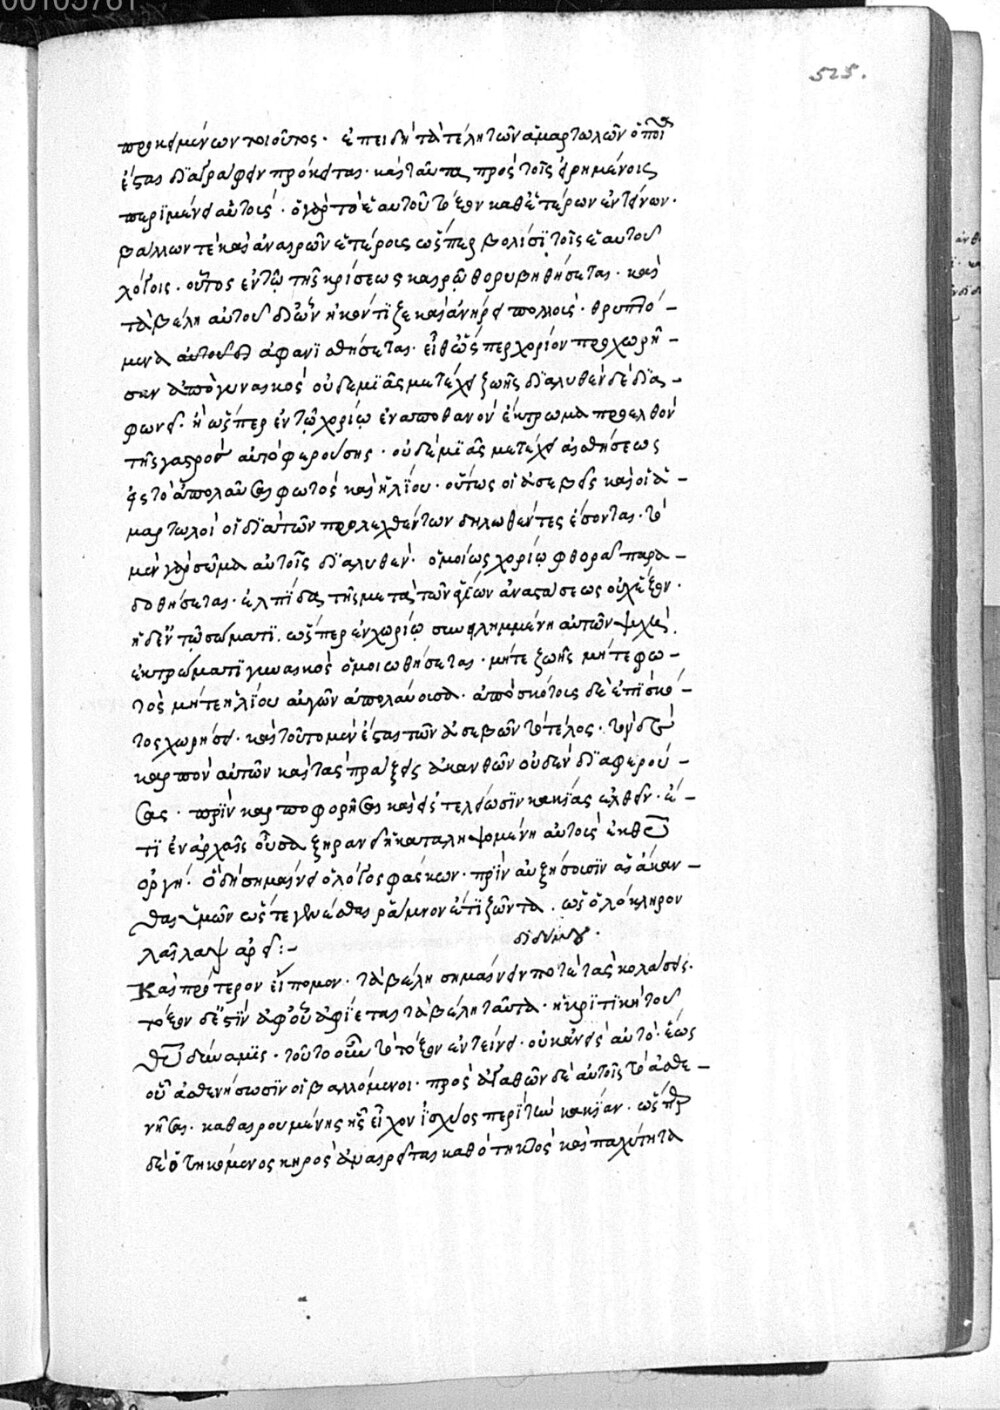 00105781
525.
προκειμένων τοιοῦτος. ἐπειδὴ τὰ τέλη τῶν ἁμαρτωλῶν ὁποῖ
ἔσται διαγράφειν πρόκειται. καὶ ταῦτα πρὸς τοῖς εἰρημένοις
περιμένει αὐτούς. ὁ γὰρ τὸ ἑαυτοῦ τόξον καθ' ἑτέρων ἐντείνων.
βάλλων τὲ καὶ ἀναιρῶν ἑτέρους ὥσπερ βολίσι τοῖς ἑαυτοῦ
λόγοις. οὗτος ἐν τῷ τῆς κρίσεως καιρῷ θορυβηθήσεται. καὶ
τὰ βέλη αὐτοῦ δι' ὧν ἠκόντιζε καὶ ἀνῄρει πολλοὺς. θρυπτό-
μενα ἀφανισθήσεται. εἶθ' ὥσπερ χορίον προχωρῆ-
σαν ἀπὸ γυναικὸς οὐδεμιᾶς μετέχει ζωῆς διαλυθὲν δὲ δια-
φωνεῖ. ἢ ὥσπερ ἐν τῷ χορίῳ ἐναποθανὸν ἔκτρωμα προελθὸν
τῆς γαστρὸς αὐτὸ φερούσης. οὐδεμιᾶς μετέχει αἰσθήσεως
εἰς τὸ ἀπολαῦσαι φωτὸς καὶ ἡλίου. οὕτως οἱ ἀσεβεῖς καὶ οἱ ἁ-
μαρτωλοὶ οἱ διὰ τῶν προλεχθέντων δηλωθέντες ἔσονται. τὸ
μὲν γὰρ σῶμα αὐτοῖς διαλυθὲν. ὁμοίως χορίῳ φθορᾷ παρα-
δοθήσεται. ἐλπίδα τῆς μετὰ τῶν ἁγίων ἀναστάσεως οὐχ ἕξον.
ἡ δ' ἐν τῷ σώματι. ὥσπερ ἐν χορίῳ συνειλημμένη αὐτῶν ψυχὴ.
ἐκτρώματι γυναικὸς ὁμοιωθήσεται. μήτε ζωῆς μήτε φω-
τὸς μήτε ἡλίου αὐγῶν ἀπολαύουσα. ἀπὸ σκότους δὲ ἐπὶ σκό-
τος χωρήσει. καὶ τοῦτο μὲν ἔσται τῶν ἀσεβῶν τὸ τέλος. τὸν δὲ
καρπὸν αὐτῶν καὶ τὰς πράξεις ἀκανθῶν οὐδὲν διαφερού-
σας. πρὶν καρποφορῆσαι καὶ εἰς τελείωσιν κακίας ἐλθεῖν. ἔ-
τι ἐν ἀρχαῖς οὖσα ξηρανεῖ ἡ καταληψομένη αὐτοὺς ἐκ θεοῦ
ὀργή. ὃ δὴ σημαίνει ὁ λόγος φάσκων. πρὶν αὐξήσουσιν αἱ ἄκαν-
θαι ὑμῶν ὥστε γενέσθαι ῥάμνον ἔτι ζῶντα. ὡς ὁλόκληρον
λαῖλαψ αἱρεῖ :-
διδύμου.
Καὶ πρότερον εἴπομεν. τὰ βέλη σημαίνειν ποτὲ τὰς κολάσεις.
τόξον δέ ἐστὶν ἀφ' οὗ ἀφίεται τὰ βέλη ταῦτα. ἡ κριτικὴ τοῦ
θεοῦ δύναμις. τοῦτο οὖν τὸ τόξον ἐντείνει. οὐκ ἀνεὶς αὐτό. ἕως
οὗ ἀσθενήσωσιν οἱ βαλλόμενοι. πρὸς ἀγαθῶν δὲ αὐτοῖς τὸ ἀσθε-
νῆσαι. καθαιρουμένης ἧς εἶχον ἰσχύος περὶ τὴν κακίαν. ὥσπερ
δὲ ὁ τηκόμενος κηρὸς ἀναιρεῖται καθ' ὃ πηκτὸς καὶ παχύτητα